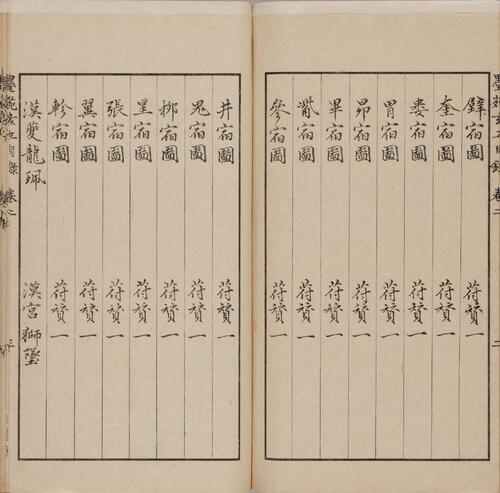 壁宿圖 符贊一
奎宿圖 符贊一
婁宿圖 符贊一
胃宿圖 符贊一
昴宿圖 符贊一
畢宿圖 符贊一
觜宿圖 符贊一
參宿圖 符贊一
井宿圖 符贊一
鬼宿圖 符贊一
柳宿圖 符贊一
星宿圖 符贊一
張宿圖 符贊一
翼宿圖 符贊一
軫宿圖 符贊一
漢雙龍珮 漢宮獅墜